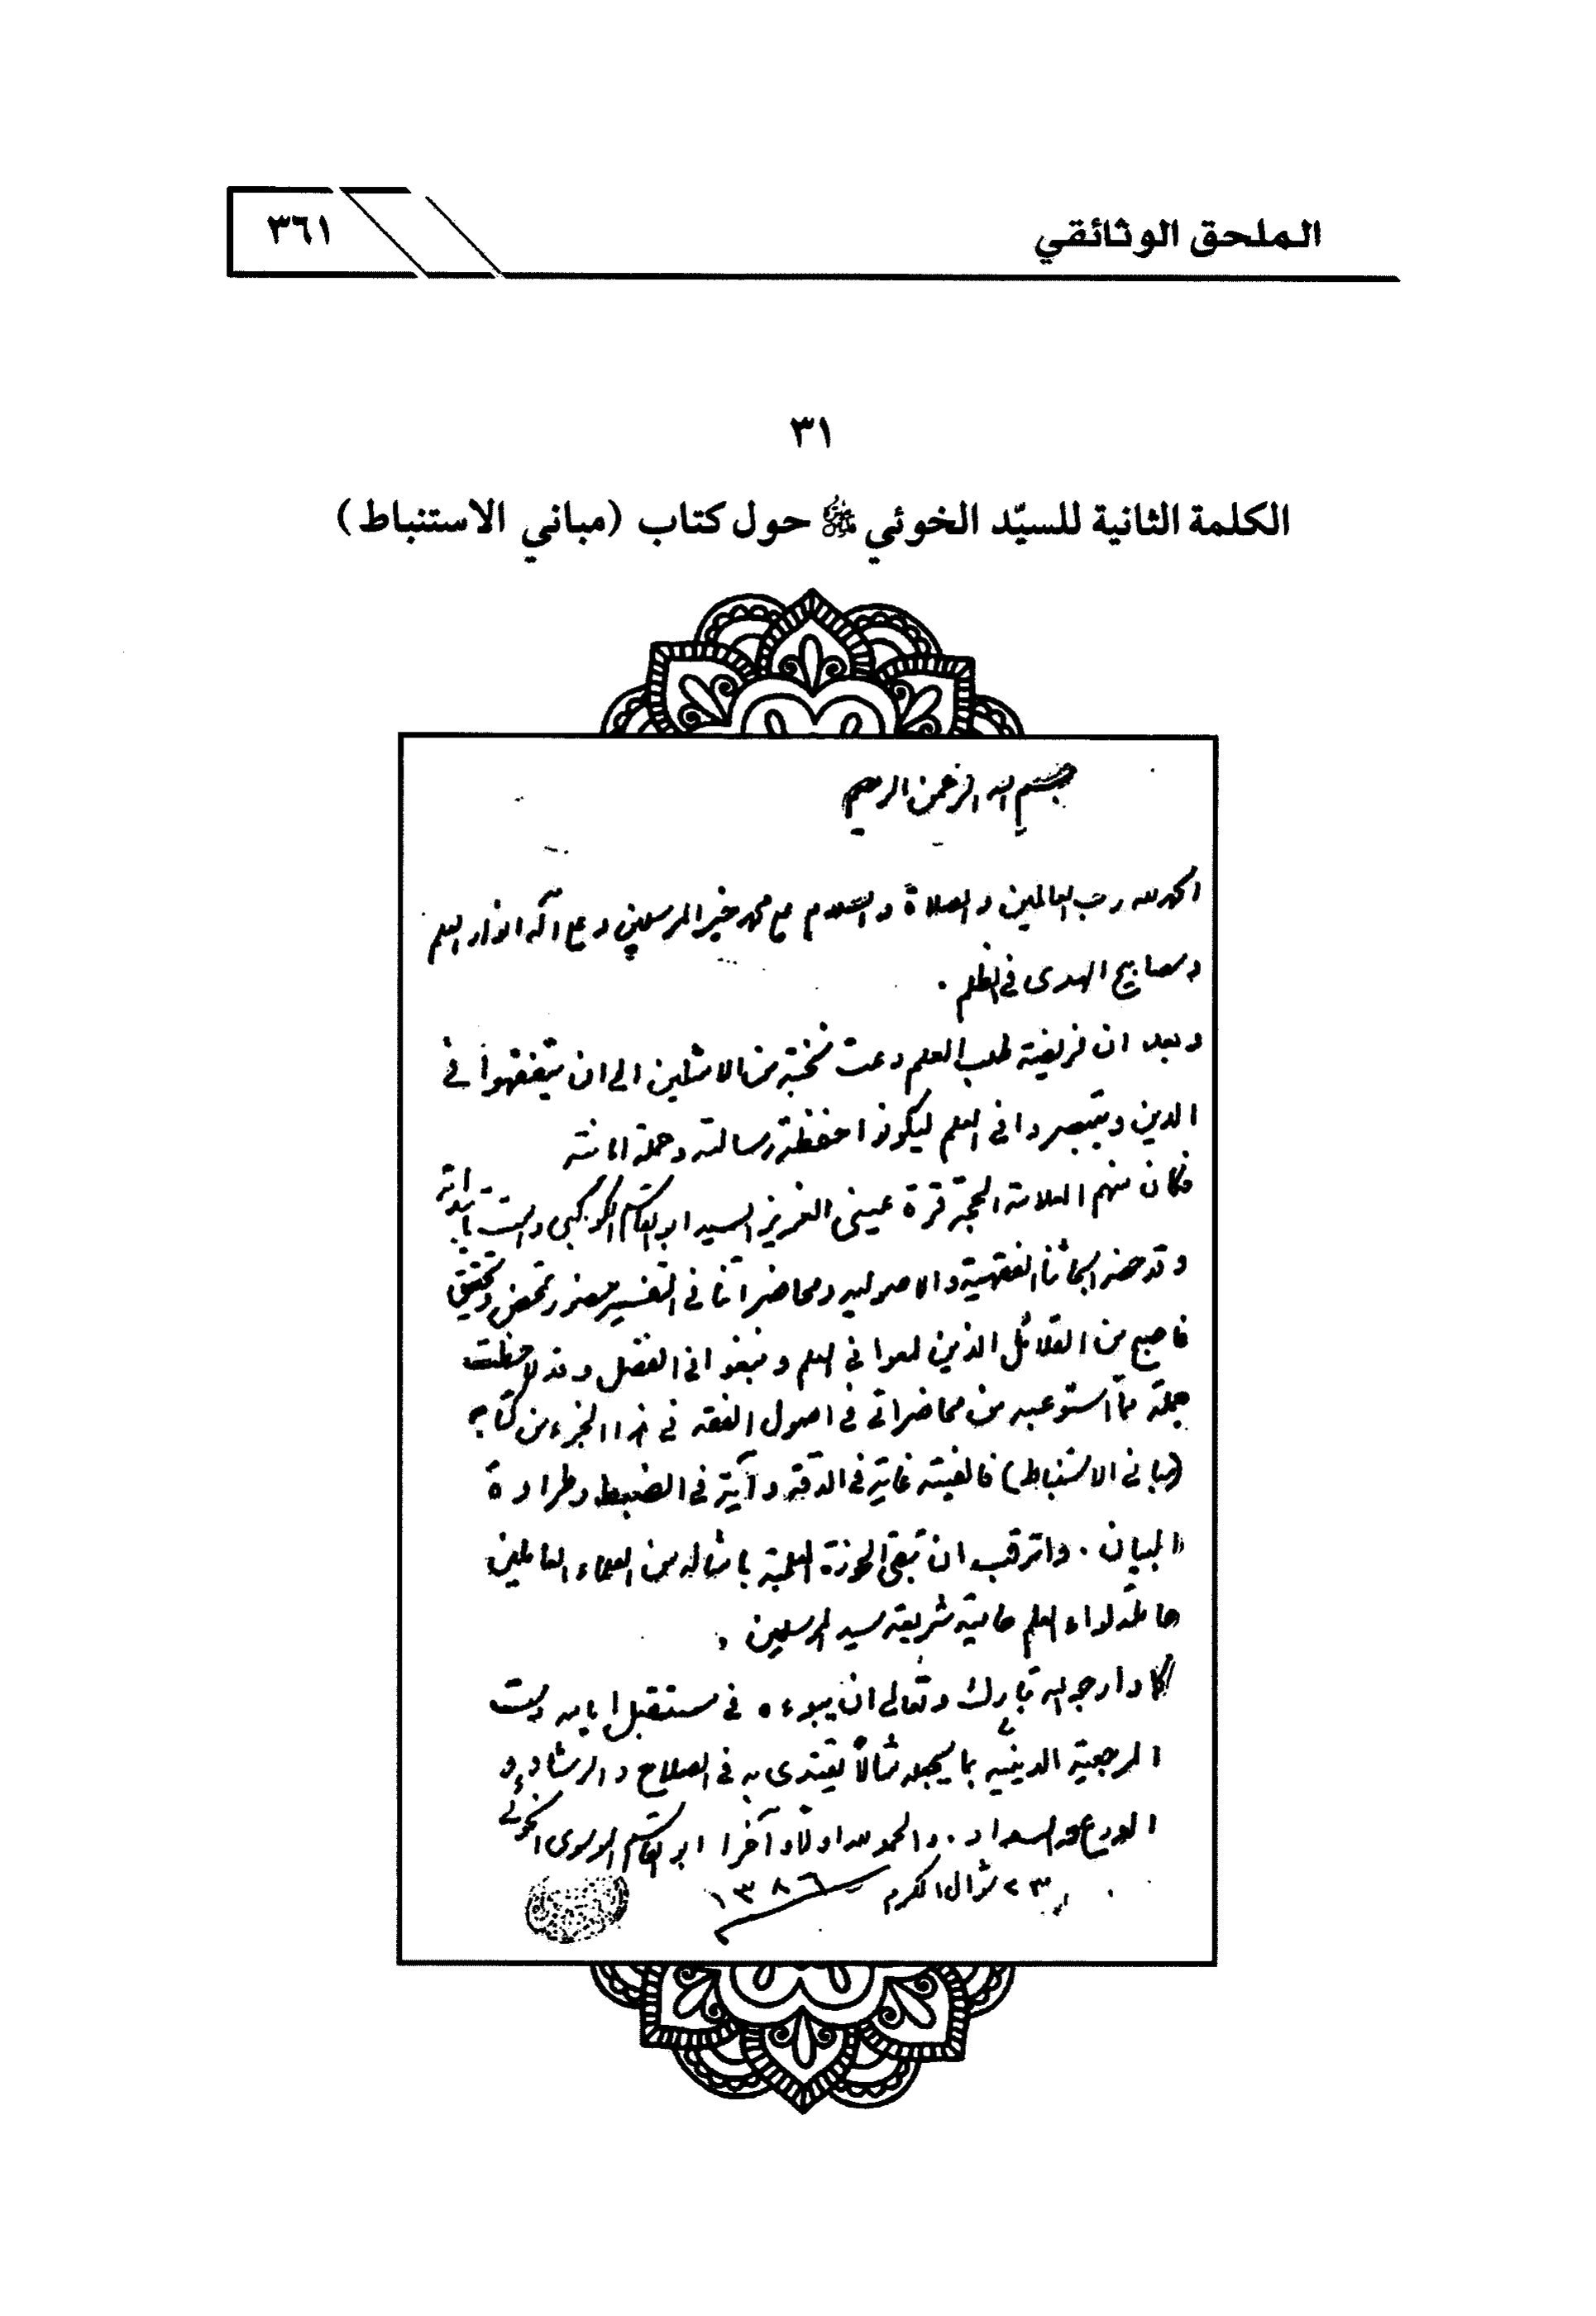 الملحق الوثائقي
٣٦١
٣١
الكلمة الثانية للسيّد الخوئي قدس سره حول كتاب (مباني الاستنباط)
بسم الله الرحمن الرحيم
الحمد لله رب العالمين والصلاة والسلام على محمد خير المرسلين وعلى آله انوار العلم
ومصابيح الهدى في الظلم .
وبعد ان فريضة طلب العلم دعت نخبة من الامثلين الى ان يتفقهوا في
الدين ويتبصروا في العلم ليكونوا حفظة رسالته وحملة امانته
فكان منهم العلامة الحجة قرة عيني العزيز السيد ابو القاسم الكوكبي دامت تأييداته
وقد حضر ابحاثنا الفقهية والاصولية ومحاضراتنا في التفسير حضور تمحض وتحقيق
فاصبح من القلائل الذين لمعوا في العلم ونبغوا في الفضل وقد لاحظت
جملة مما استوعبه من محاضراتي في اصول الفقه في هذا الجزء من كتابه
(مباني الاستنباط) فالفيته غاية في الدقة وآية في الضبط وطراوة
البيان . واترقب ان تبقى الحوزة العلمية بامثاله من العلماء العاملين
حاملة لواء العلم حامية شريعة سيد المرسلين .
كما وارجو الله تبارك وتعالى ان يبوءه في مستقبل ايامه دست
المرجعية الدينية بما يجعله مثالاً يقتدى به في الصلاح والرشاد و
الورع والسداد . والحمد لله اولاً وآخرا ابو القاسم الموسوي الخوئي
٢٣ شوال المكرم ١٣٨٦